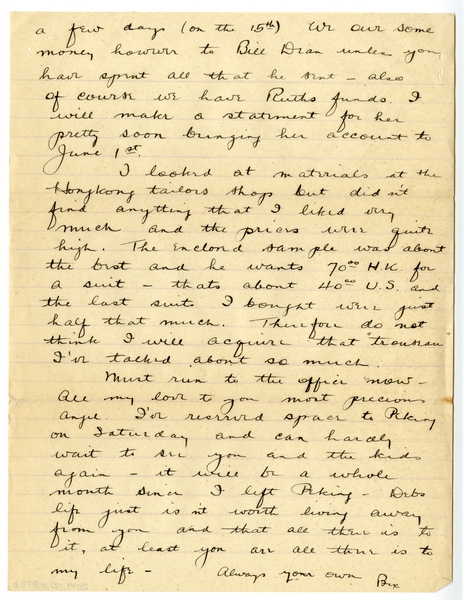 a few days (on the 15th) We owe some
money however to Bill Dean unless you
have spent all that he sent – also
of course we have Ruths funds. I
will make a statement for her
pretty soon bringing her account to
June 1st.
I looked at materials at the
Hongkong tailors shops but didn't
find anything that I liked very
much and the prices were quite
high. The enclosed sample was about
the best and he wants 70.00 H.K. for
a suit – thats about 40.00 U.S. and
the last suits I bought were just
half that much. Therefore do not
think I will acquire that trouseau
I've talked about so much.
Must run to the office now –
All my love to you most precious
angel I've reserved space to Peking
on Saturday and can hardly
wait to see you and the kids
again – it will be a whole
month since I left Peking – Debs
life just isn't worth living away
from you and that all there is to
it, at least you are all there is to
my life – Always your own Bix